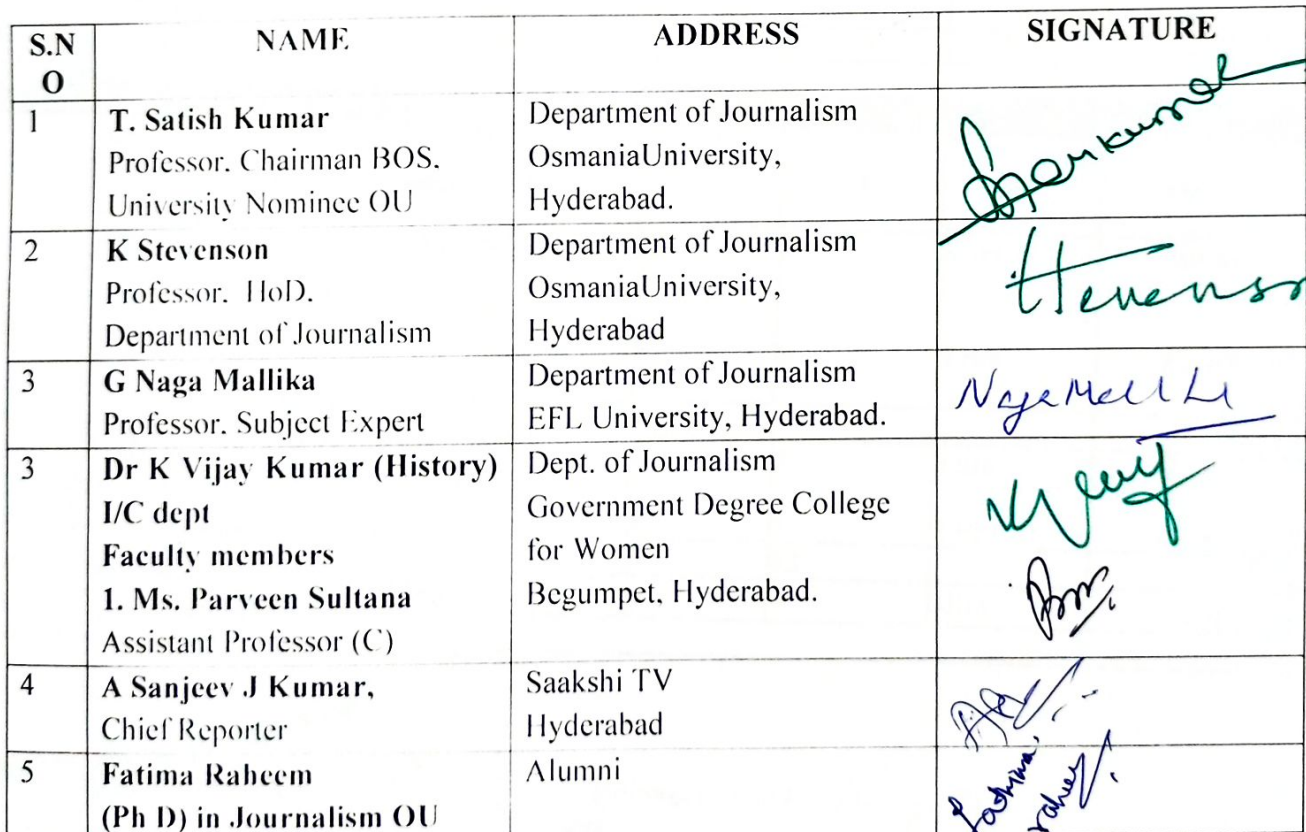 S.N
O
NAME
ADDRESS
SIGNATURE
1
T. Satish Kumar
Professor. Chairman BOS.
University Nominee OU
Department of Journalism
OsmaniaUniversity,
Hyderabad.
2
K Stevenson
Professor. HoD.
Department of Journalism
Department of Journalism
OsmaniaUniversity,
Hyderabad
Stevenson
3
G Naga Mallika
Professor. Subject Expert
Department of Journalism
EFL University, Hyderabad.
3
Dr K Vijay Kumar (History)
I/C dept
Faculty members
1. Ms. Parveen Sultana
Assistant Professor (C)
Dept. of Journalism
Government Degree College
for Women
Begumpet, Hyderabad.
4
A Sanjeev J Kumar,
Chief Reporter
Saakshi TV
Hyderabad
5
Fatima Raheem
(Ph D) in Journalism OU
Alumni